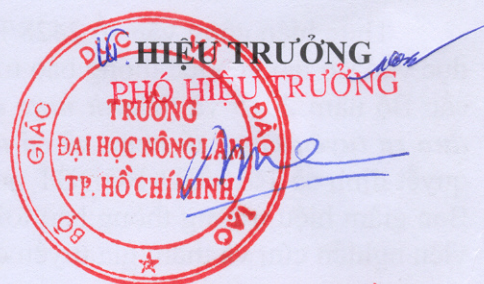 KT. HIỆU TRƯỞNG
PHÓ HIỆU TRƯỞNG
BỘ GIÁO DỤC ĐÀO TẠO
TRƯỜNG
ĐẠI HỌC NÔNG LÂM
TP. HỒ CHÍ MINH